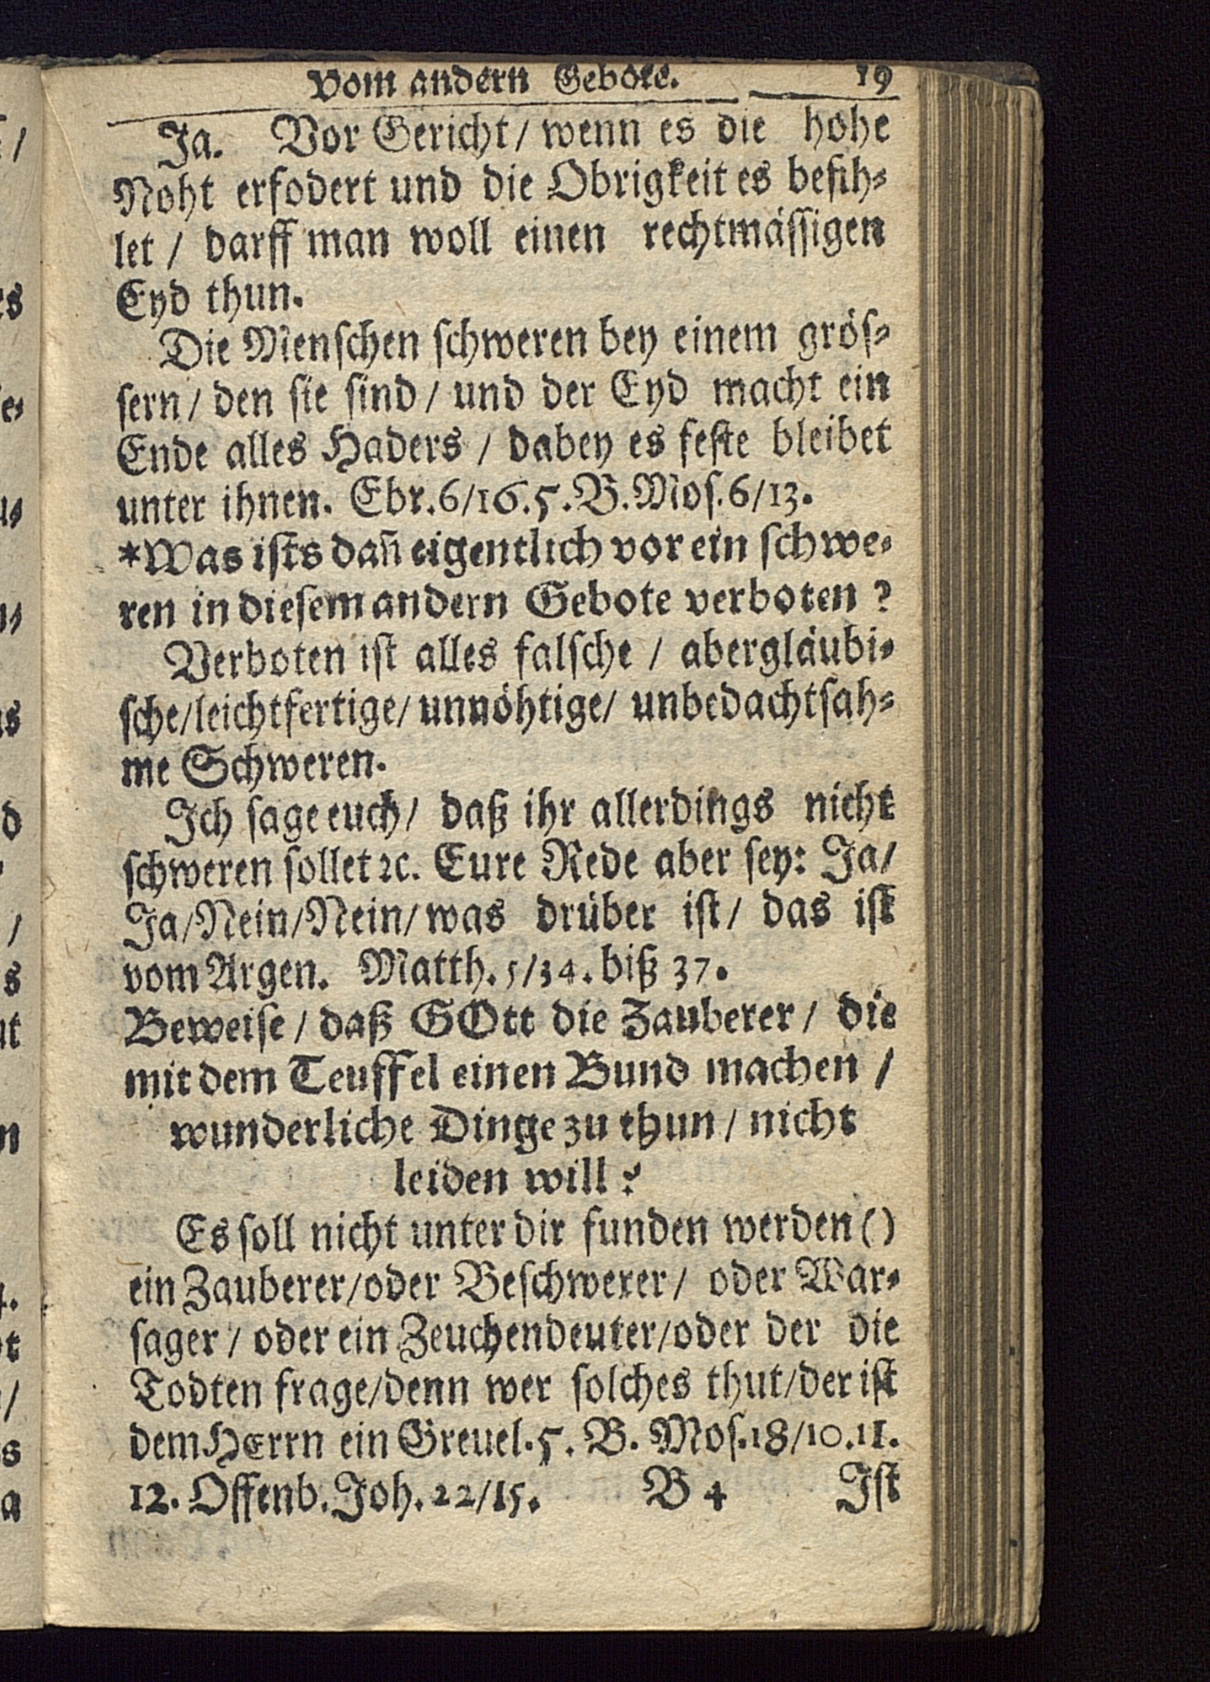 Vom andern Gebote. 19
Ja. Vor Gericht / wenn es die hohe
Noht erfodert und die Obrigkeit es befih⸗
let / darff man woll einen rechtmässigen
Eyd thun.
Die Menschen schweren bey einem grös⸗
sern / den sie sind / und der Eyd macht ein
Ende alles Haders / dabey es feste bleibet
unter ihnen. Ebr. 6/16. 5. B. Mos. 6/13.
*Was ists dañ eigentlich vor ein schwe⸗
ren in diesem andern Gebote verboten?
Verboten ist alles falsche / abergläubi⸗
sche/leichtfertige/unnöhtige/ unbedachtsah⸗
me Schweren.
Ich sage euch/ daß ihr allerdings nicht
schweren sollet ꝛc. Eure Rede aber sey: Ja/
Ja/Nein/Nein/was drüber ist/ das ist
vom Argen. Matth. 5/34. biß 37.
Beweise / daß GOtt die Zauberer / die
mit dem Teuffel einen Bund machen /
wunderliche Dinge zu thun / nicht
leiden will?
Es soll nicht unter dir funden werden ()
ein Zauberer/oder Beschwerer/ oder War⸗
sager / oder ein Zeuchendeuter/oder der die
Todten frage/denn wer solches thut/der ist
dem HErrn ein Greuel. 5. B. Mos. 18/10.11.
12. Offenb. Joh. 22/15. B 4 Ist